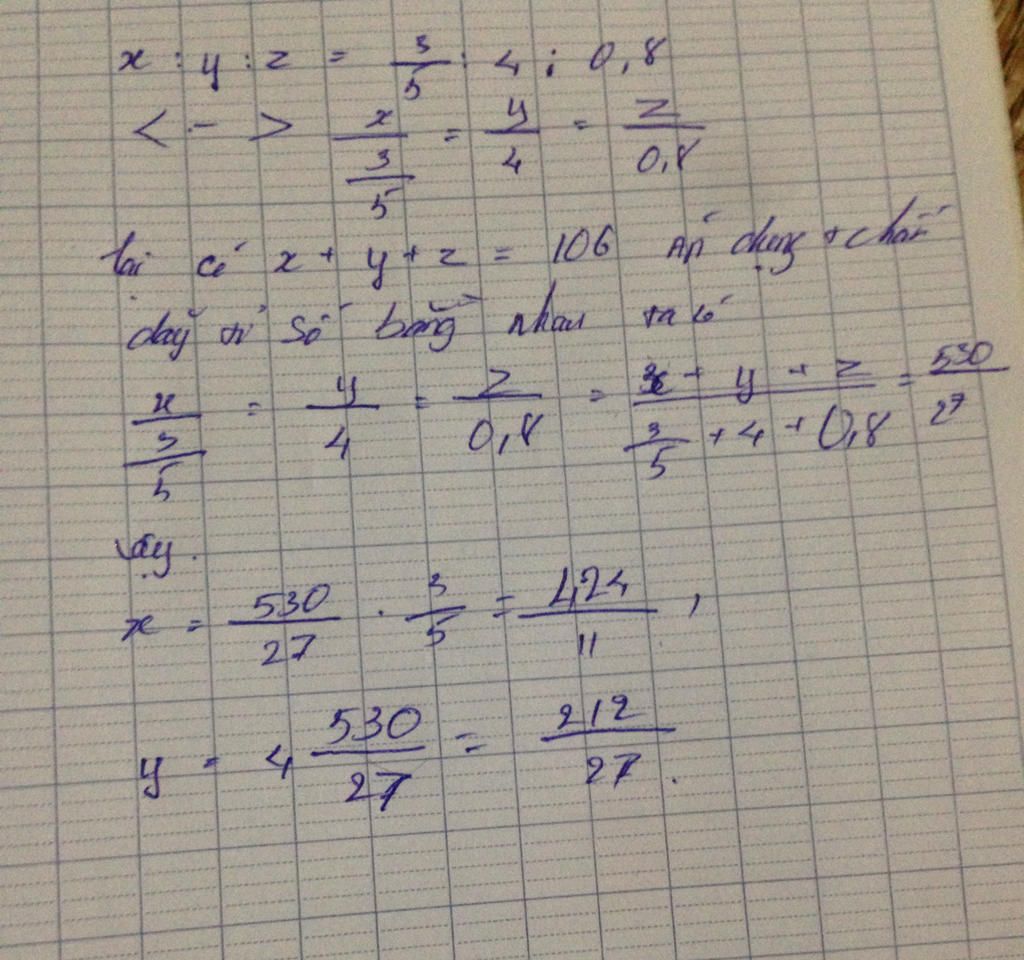 x : y : z = 3/5 : 4 : 0,8
<-> x/(3/5) = y/4 = z/0,8
lại có x + y + z = 106 Áp dụng t chất
dãy tỉ số bằng nhau ta có
x/(3/5) = y/4 = z/0,8 = (x + y + z)/(3/5 + 4 + 0,8) = 530/27
Vậy.
x = 530/27 . 3/5 = 424/11 ,
y = 4 530/27 = 212/27 .